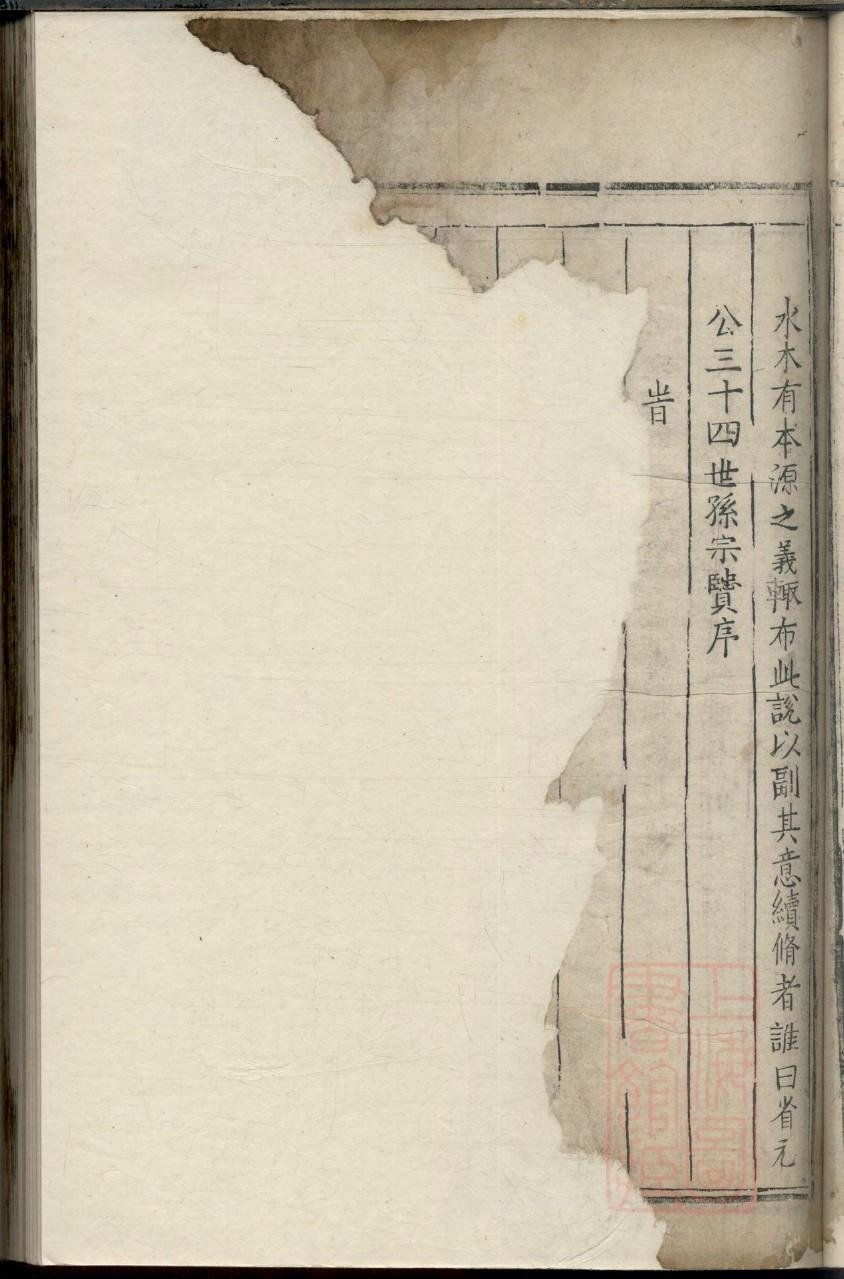 水木有本源之義輙布此說以副其意續脩者誰曰省元
公三十四世孫宗贒序
旹
上海圖書館藏